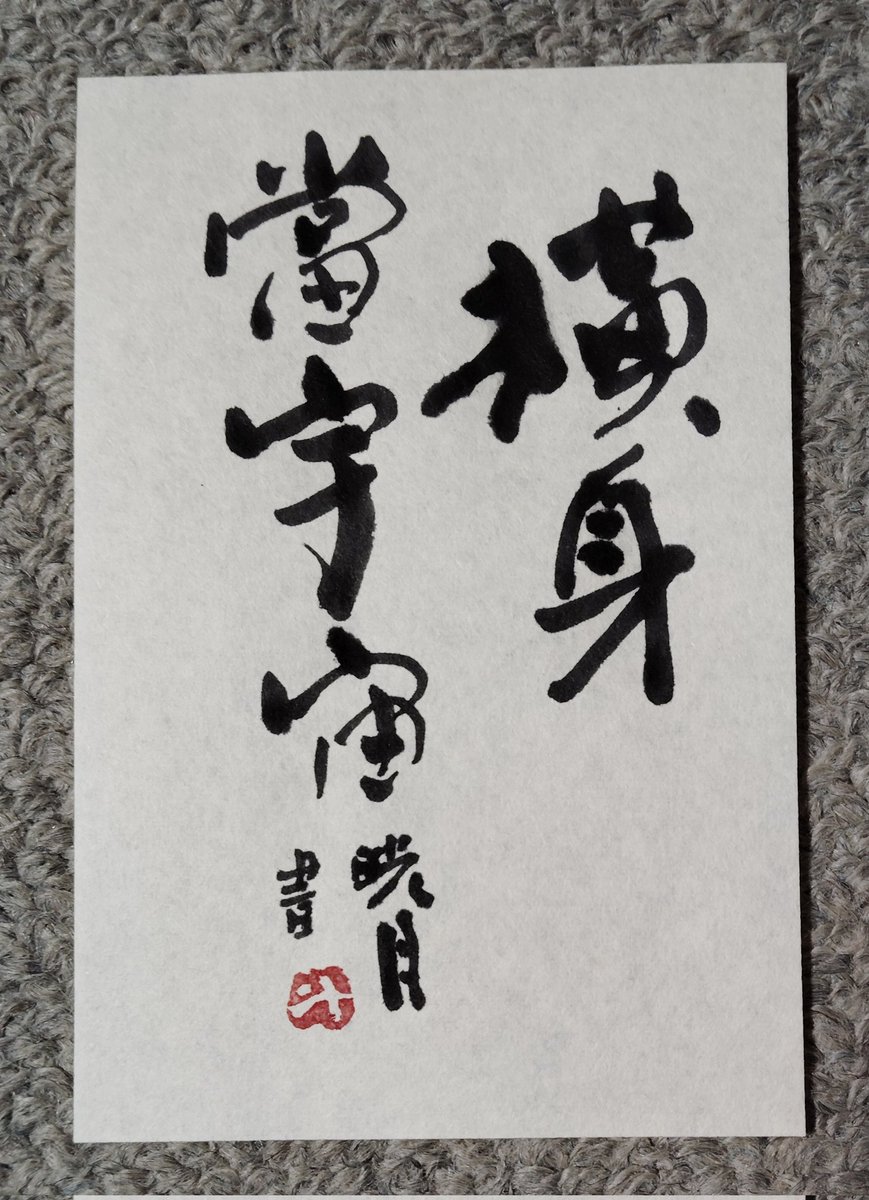 横身
當宇宙
晄月
書